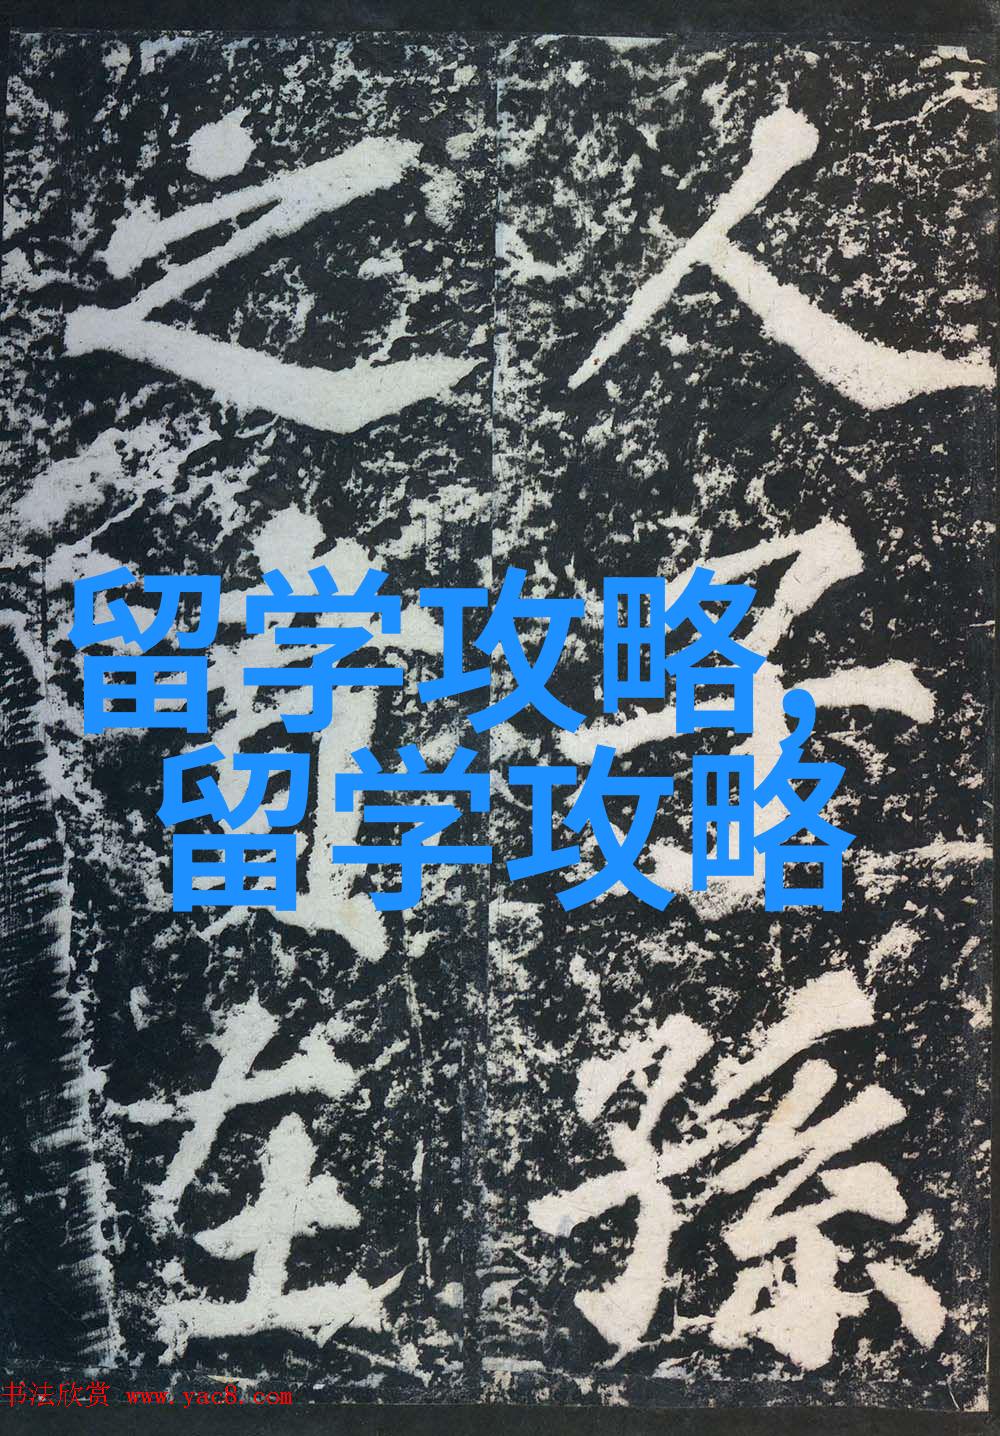 人子孫
之在
留学攻略,
留学攻略
书法欣赏 www.yac8.com